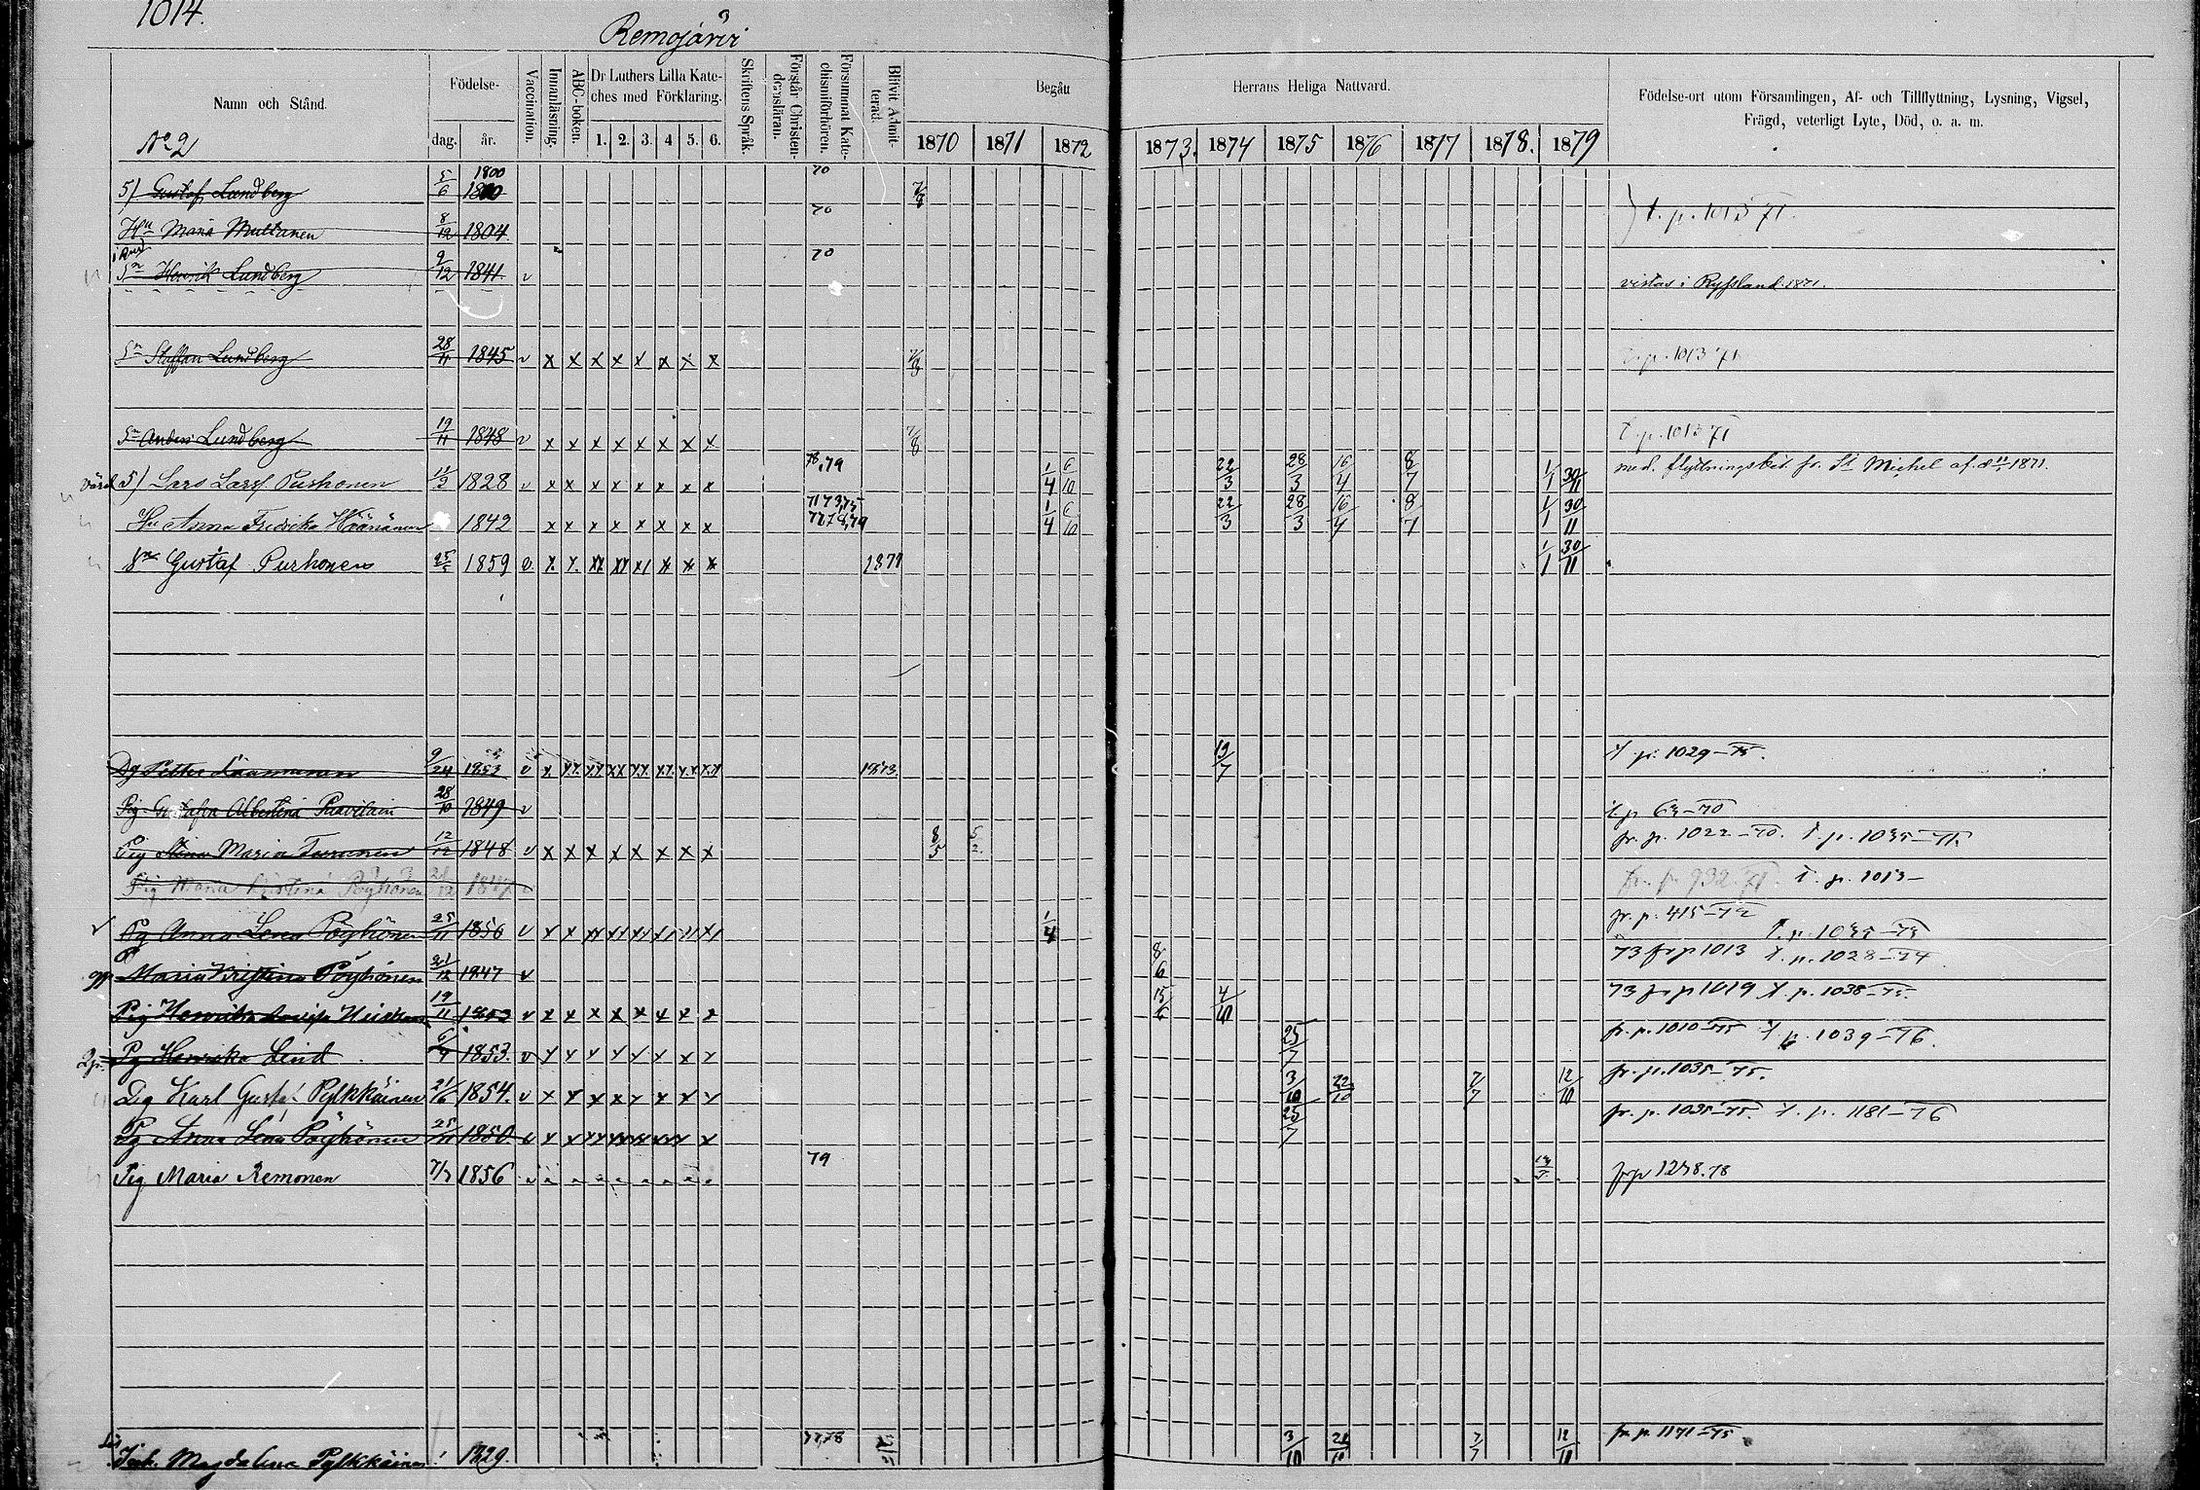 1014.
Remojärvi
Namn och Stånd.
Födelse-
dag.
år.
Vaccination.
Innanläsning.
ABC-boken.
Dr Luthers Lilla Kate-
ches med Förklaring.
1. 2. 3. 4 5. 6.
Skriftens Språk.
Förstår Christen-
domsläran.
Försummat Kate-
chismiförhören.
Blifvit Admit-
terad.
Begått
Herrans Heliga Nattvard.
1870 1871 1872 1873. 1874 1875 1876 1877 1878. 1879
Födelse-ort utom Församlingen, Af- och Tillflyttning, Lysning, Vigsel,
Frägd, veterligt Lyte, Död, o. a. m.
No 2
5) Gustaf Lundberg 5/6 1800 1800 70 7/8
Hu Maria Multanen 8/12 1804. 70 t. p. 1013 71.
i Rysl
Sn Henrik Lundberg 9/12 1841. v 70 vistas i Ryssland 1871.
Sn Staffan Lundberg 28/11 1845 v x x x x x x x x t. p. 1013 71
Sn Anders Lundberg 19/11 1848 v x x x x x x x x 7/8 t. p. 1013 71
värd 5) Lars Larsf Purhonen 1828 v x x x x x x x x 78,79 1/4 6/10 22/3 28/3 16/4 8/7 1/1 30/11 med. flyttningsbet. fr. St Michel af d 1871.
Hu Anna Fredrika 1842 x x x x x x x x 71 73,75 77,78,79 1/4 6/10 22/3 28/3 16/4 8/7 1/1 30/11
Sn Gustaf Purhonen 1859 v. x. x. xx xx x/ x x x 1877 1/1 30/11
Dg Petter 9/24 1853 v 1873 19/7 t. p. 1029-75.
Pig. Gustafva Albertina 28/10 1849 v t. p. 63-70
Pig Stina Maria Turunen 12/12 1848 v x x x x x x x x 8/5 5/2. fr. p. 1022-70. t. p. 1035-71.
Pig Maria Kristina Pöyhönen 21/12 1847 v fr. p. 932. 71. t. p. 1013-
Pg Anna Lena Pöyhönen 25/11 1856 v 1/4 fr. p. 415-72 t. p. 1035-73
Maria Kristina Pöyhönen 21/12 1847 v 8/6 73 fr p 1013 t. p. 1028-74
Pig Henrika Lovisa 19/11 1853 v x x x x x x x x 15/6 4/10 73 fr p 1019 t. p. 1038-75.
Pg Henrika Lind 6/9 1853. v x x x x x x x x 25/7 fr. p. 1010-75 t. p. 1039-76.
Dg Karl Gustaf Pylkkäinen 21/6 1854. v x x x x x x x x 3/10 22/10 7/7 12/10 fr. p. 1035-75.
Pg Anna Lena Pöyhönen 25/11 1850. v 25/7 fr. p. 1035-75. t. p. 1181-76
Pig Maria Remonen 7/7 1856 79 fr p 1248. 78
Magdalena Pylkkäinen 1829. 77,78 3/10 7/7 12/10 fr. p. 1171-75